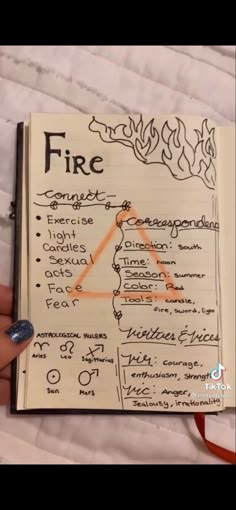 Fire
connect-
• Exercise
• light
Candles
• Sexual
acts
• Face
Fear
Correspondenc
Direction: South
Time: Noon
Season: Summer
Color: Red
Tools: candle,
fire, sword, light
ASTROLOGICAL RULERS
Aries Leo Sagittarius
Sun Mars
Virtues & Vices
Vir: Courage,
enthusiasm, Strength
Vic: Anger,
Jealousy, irrationality
TikTok